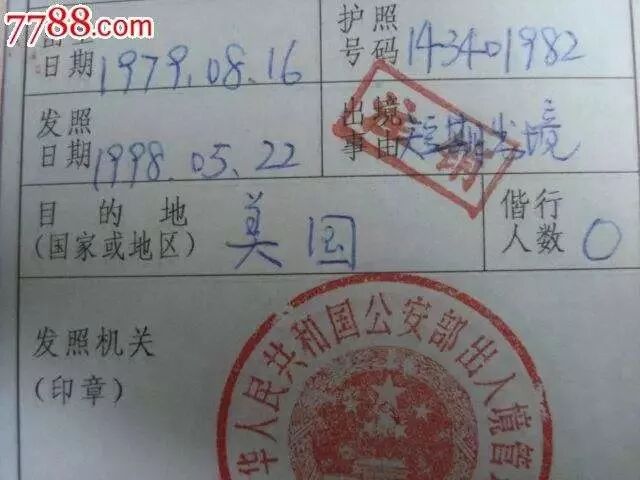 7788.com
日期 1979.08.16
护照
号码 143401982
发照
日期 1998.05.22
出境
事由 短期出境
目的地
(国家或地区) 美国
偕行
人数 0
发照机关
(印章)
华人民共和国公安部出入境管